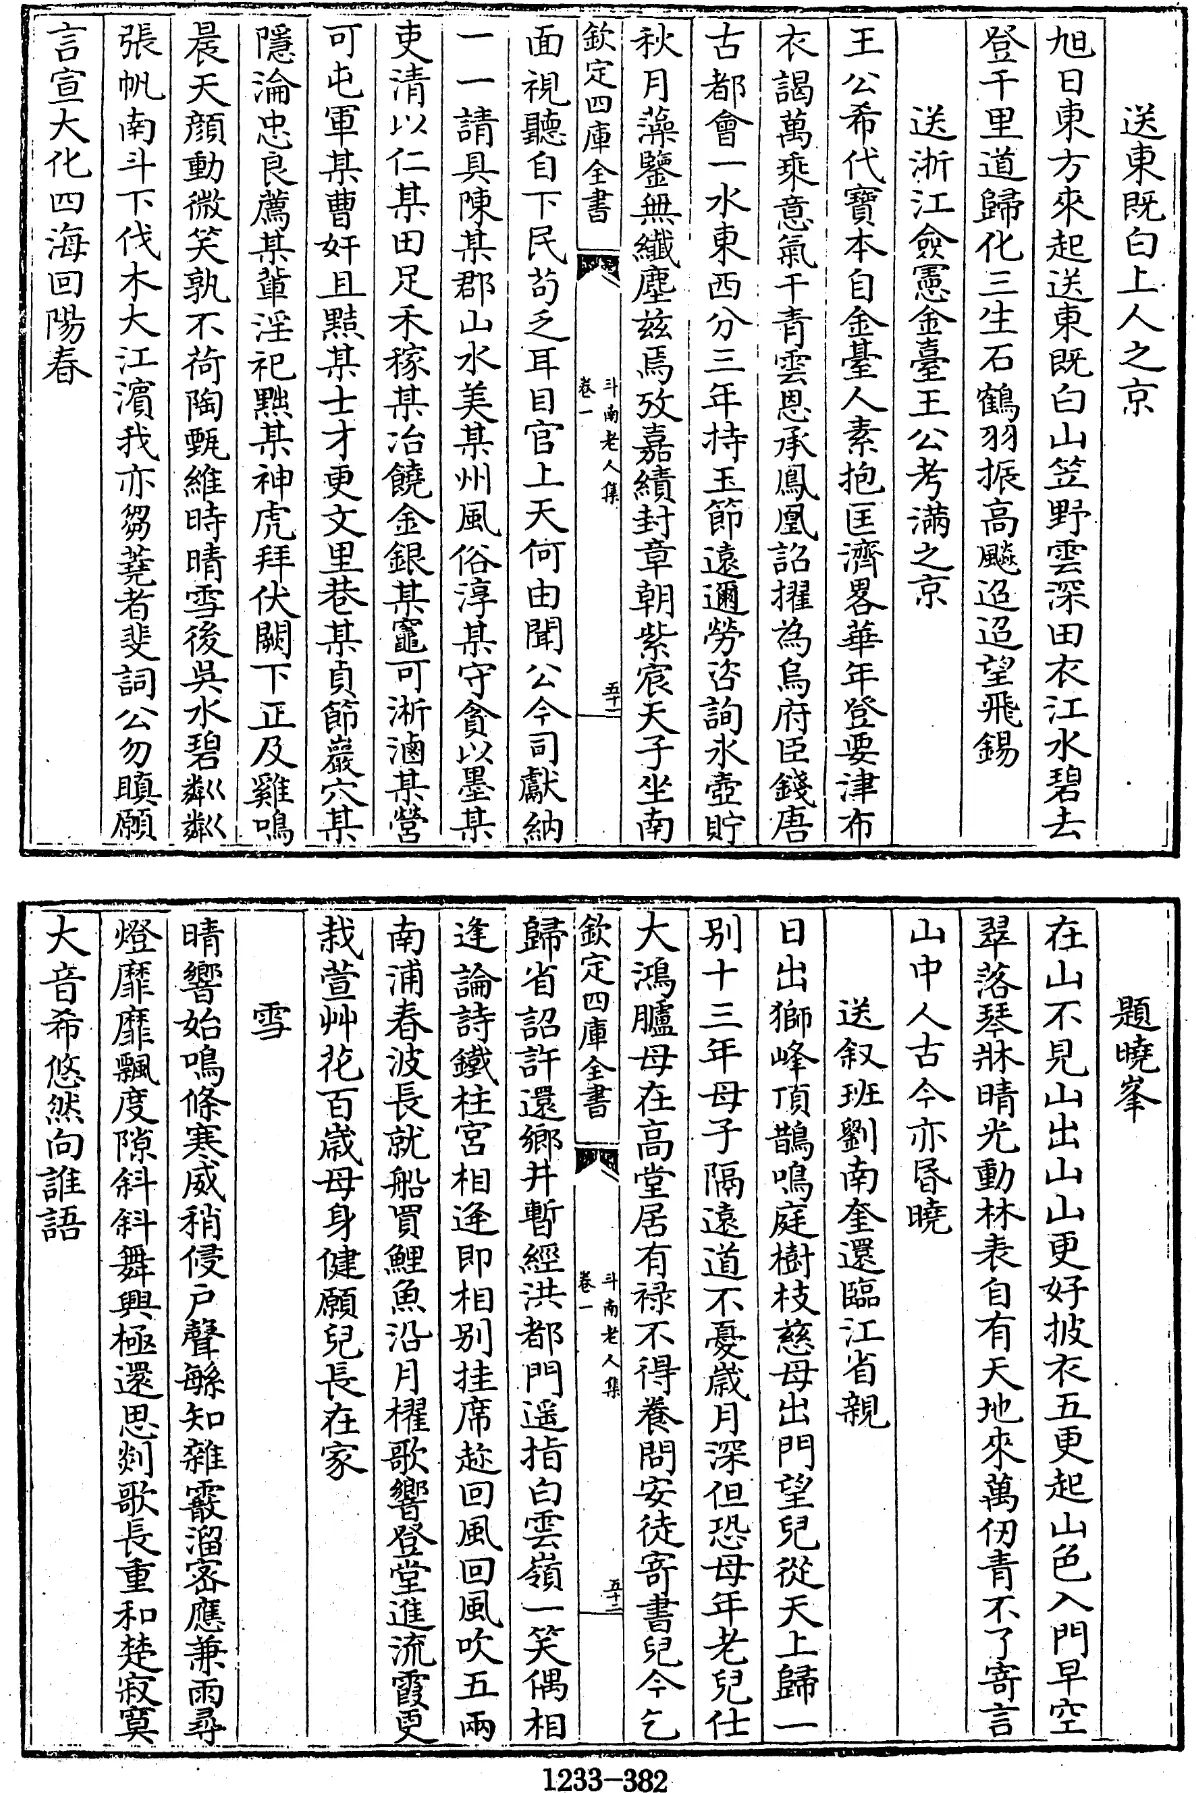 送東既白上人之京
旭日東方來起送東既白山笠野雲深田衣江水碧去
登千里道歸化三生石鶴羽振高飈迢迢望飛錫
送浙江僉憲金臺王公考滿之京
王公希代寶本自金臺人素抱匡濟畧華年登要津布
衣謁萬乘意氣干青雲恩承鳳凰詔擢為烏府臣錢唐
古都會一水東西分三年持玉節遠邇勞咨詢氷壺貯
秋月藻鑒無纖塵兹焉攷嘉績封章朝紫宸天子坐南
欽定四庫全書
斗南老人集
卷一
五十一
面視聽自下民苟乏耳目官上天何由聞公今司獻納
一一請具陳某郡山水美某州風俗淳某守貪以墨某
吏清以仁某田足禾稼某冶饒金銀某竈可淅滷某營
可屯軍某曹奸且黠某士才更文里巷某貞節巖穴某
隱淪忠良薦某輩淫祀黜某神虎拜伏闕下正及雞鳴
晨天顔動微笑孰不荷陶甄維時晴雪後吳水碧粼粼
張帆南斗下伐木大江濱我亦芻蕘者斐詞公勿瞋願
言宣大化四海回陽春
題曉峯
在山不見山出山山更好披衣五更起山色入門早空
翠落琴牀晴光動林表自有天地來萬仞青不了寄言
山中人古今亦昏曉
送叙班劉南奎還臨江省親
日出獅峰頂鵲鳴庭樹枝慈母出門望兒從天上歸一
别十三年母子隔遠道不憂歲月深但恐母年老兒仕
大鴻臚母在高堂居有禄不得養問安徒寄書兒今乞
欽定四庫全書
斗南老人集
卷一
五十二
歸省詔許還鄉井暫經洪都門遥指白雲嶺一笑偶相
逢論詩鐵柱宮相逢即相别挂席趁回風回風吹五兩
南浦春波長就船買鯉魚沿月櫂歌響登堂進流霞更
栽萱艸花百歲母身健願兒長在家
雪
晴響始鳴條寒威稍侵戶聲繇知雜霰溜密應兼雨尋
燈靡靡飄度隙斜斜舞興極還思剡歌長重和楚寂寞
大音希悠然向誰語
1233-382